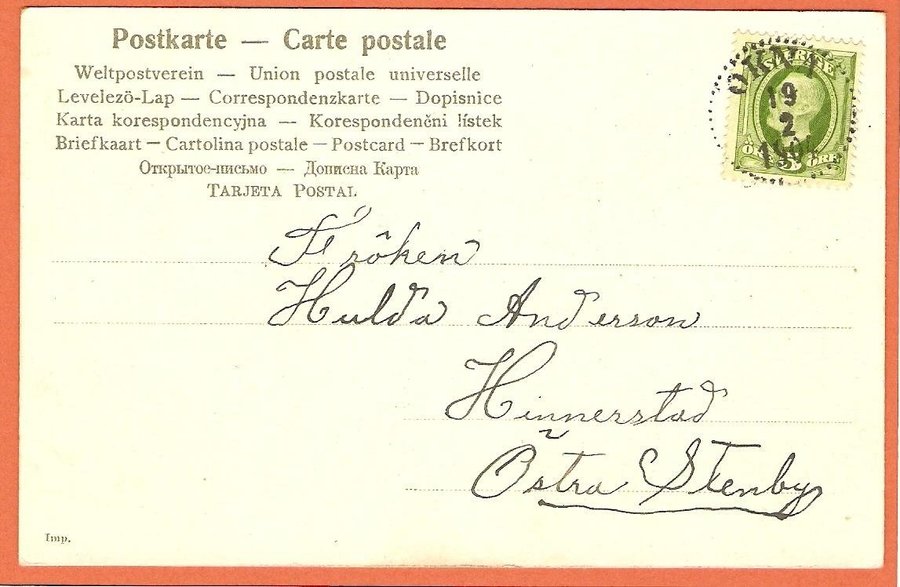 Postkarte — Carte postale
Weltpostverein — Union postale universelle
Levelezö-Lap — Correspondenzkarte — Dopisnice
Karta korespondencyjna — Korespondenčni listek
Briefkaart — Cartolina postale — Postcard — Brefkort
Открытое-письмо — Дописна Карта
TARJETA POSTAL
SVERIGE
19
2
5
ÖRE
Fröken
Hulda Anderson
Hinnerstad
Östra Stenby
Imp.